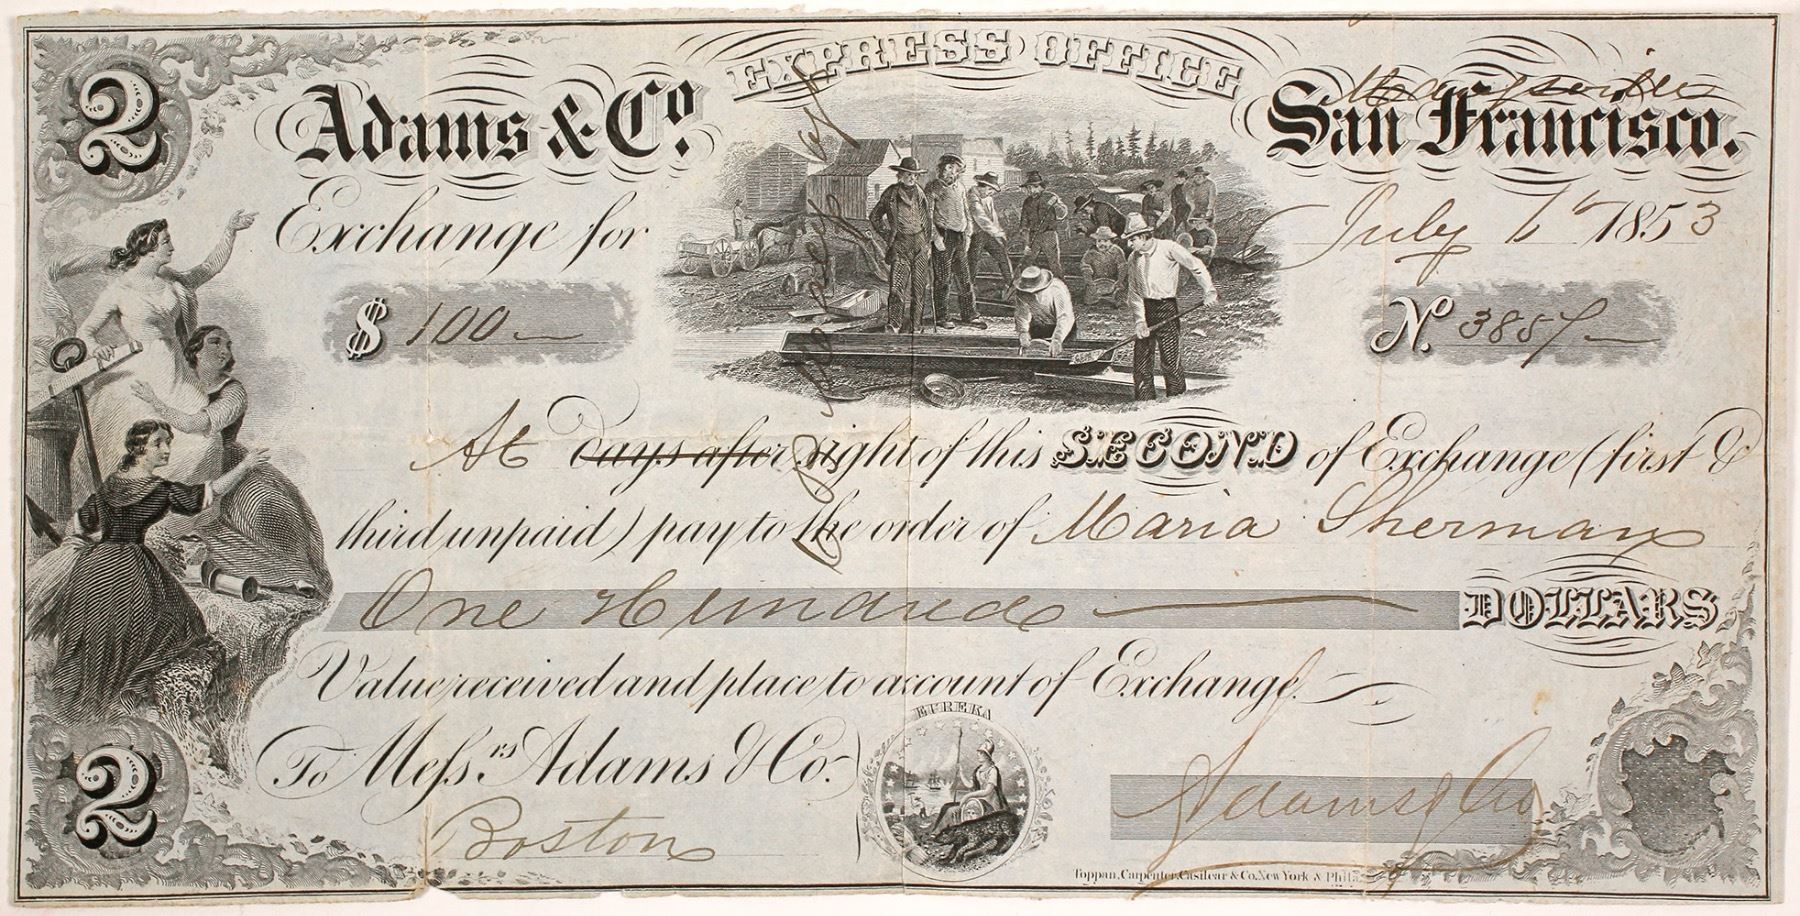 2
Adams & Co.
EXPRESS OFFICE
Marysville
San Francisco.
Exchange for
July 1st 1853
$ 100 —
No. 3857 —
At days after sight of this SECOND of Exchange (first &
third unpaid) pay to the order of Maria Sherman
One Hundred — DOLLARS
Value received and place to account of Exchange.
To Messrs Adams & Co.
Boston
EUREKA
Adams & Co
2
Toppan, Carpenter, Casilear & Co. New York & Phila.